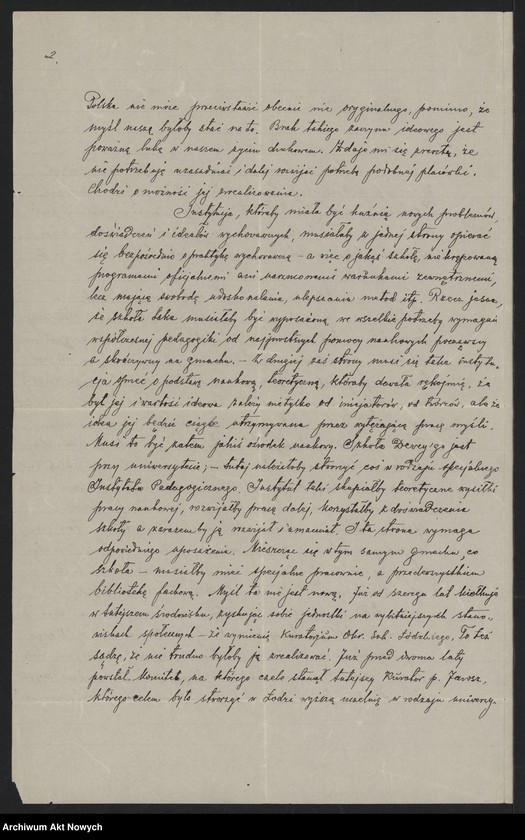 2.
Polska nie może przeciwstawić obecnie nic oryginalnego, pomimo, że
myśl naszą byłoby stać na to. Brak takiego zaczynu ideowego jest
poważną luką w naszem życiu duchowem. Zdaje mi się zresztą, że
nie potrzebuję uzasadniać i dalej rozwijać potrzeby podobnej placówki.
Chodzi o możność jej zrealizowania.
Instytucja, któraby miała być kuźnią nowych problemów,
doświadczeń i ideałów wychowawczych, musiałaby z jednej strony opierać
się bezpośrednio o praktykę wychowawczą – a więc o jakąś szkołę, nie krępowaną
programami oficjalnemi ani narzuconemi warunkami zewnętrznemi,
lecz mającą swobodę udoskonalenia, ulepszania metod itp. Rzecz jasna,
że szkoła taka musiałaby być wyposażoną we wszelkie potrzeby wymagań
współczesnej pedagogiki od najprostszych pomocy naukowych począwszy
a skończywszy na gmachu. – Z drugiej zaś strony musi się taka instytu-
cja oprzeć o podstawę naukową, teoretyczną, któraby dawała rękojmię, że
byt jej i wartość ideowa zależy nietylko od inicjatorów, od twórców, ale że
idea jej będzie ciągle utrzymywana przez wytężającą pracę myśli.
Musi to być zatem jakiś ośrodek naukowy. Szkoła Dewey'ego jest
przy uniwersytecie; – tutaj należałoby stworzyć coś w rodzaju specjalnego
Instytutu Pedagogicznego. Instytut taki skupiałby teoretyczne wysiłki
pracy naukowej, rozwijałby pracę dalej, korzystałby z doświadczenia
szkoły a zarazem by ją rozwijał i umacniał. I ta strona wymaga
odpowiedniego uposażenia. Mieszcząc się w tym samym gmachu, co
szkoła – musiałby mieć specjalne pracownie, a przedewszystkiem
bibliotekę fachową. Myśl ta nie jest nową, już od szeregu lat kiełkuje
w tutejszem środowisku, zyskując sobie jednostki na wybitniejszych stano-
wiskach społecznych – że wymienię Kuratorjum Okr. Szk. Łódzkiego. To też
sądzę, że nie trudno byłoby ją zrealizować. Już przed dwoma laty
powstał Komitet, na którego czele stanął tutejszy Kurator p. Jarosz,
którego celem było stworzyć w Łodzi wyższą uczelnię w rodzaju uniwersy-
Archiwum Akt Nowych